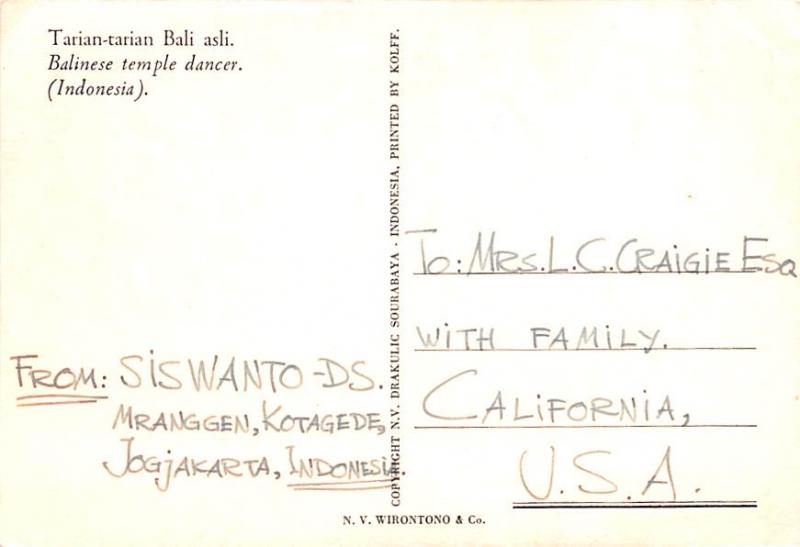 Tarian-tarian Bali asli.
Balinese temple dancer.
(Indonesia).
FROM: SISWANTO-DS.
MRANGGEN, KOTAGEDE,
JOGJAKARTA, INDONESIA.
COPYRIGHT N.V. DRAKULIC SOURABAYA - INDONESIA, PRINTED BY KOLFF.
To: MRS. L. C. CRAIGIE ESQ
WITH FAMILY.
CALIFORNIA,
U.S.A.
N. V. WIRONTONO & Co.